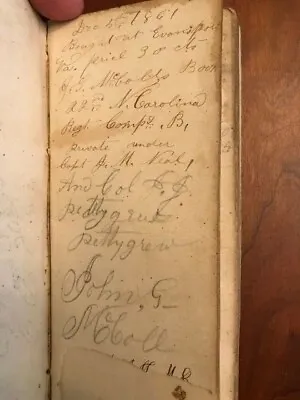 Dec 5th, 1861
Bought at Evansport
Va. price 30 cts
J. G. McColls Book
22d N. Carolina
Regt. Comp. B,
Private under
Capt J. M. Neal,
And Col J. J.
pettygrew
pettygrew
John, G
McColl